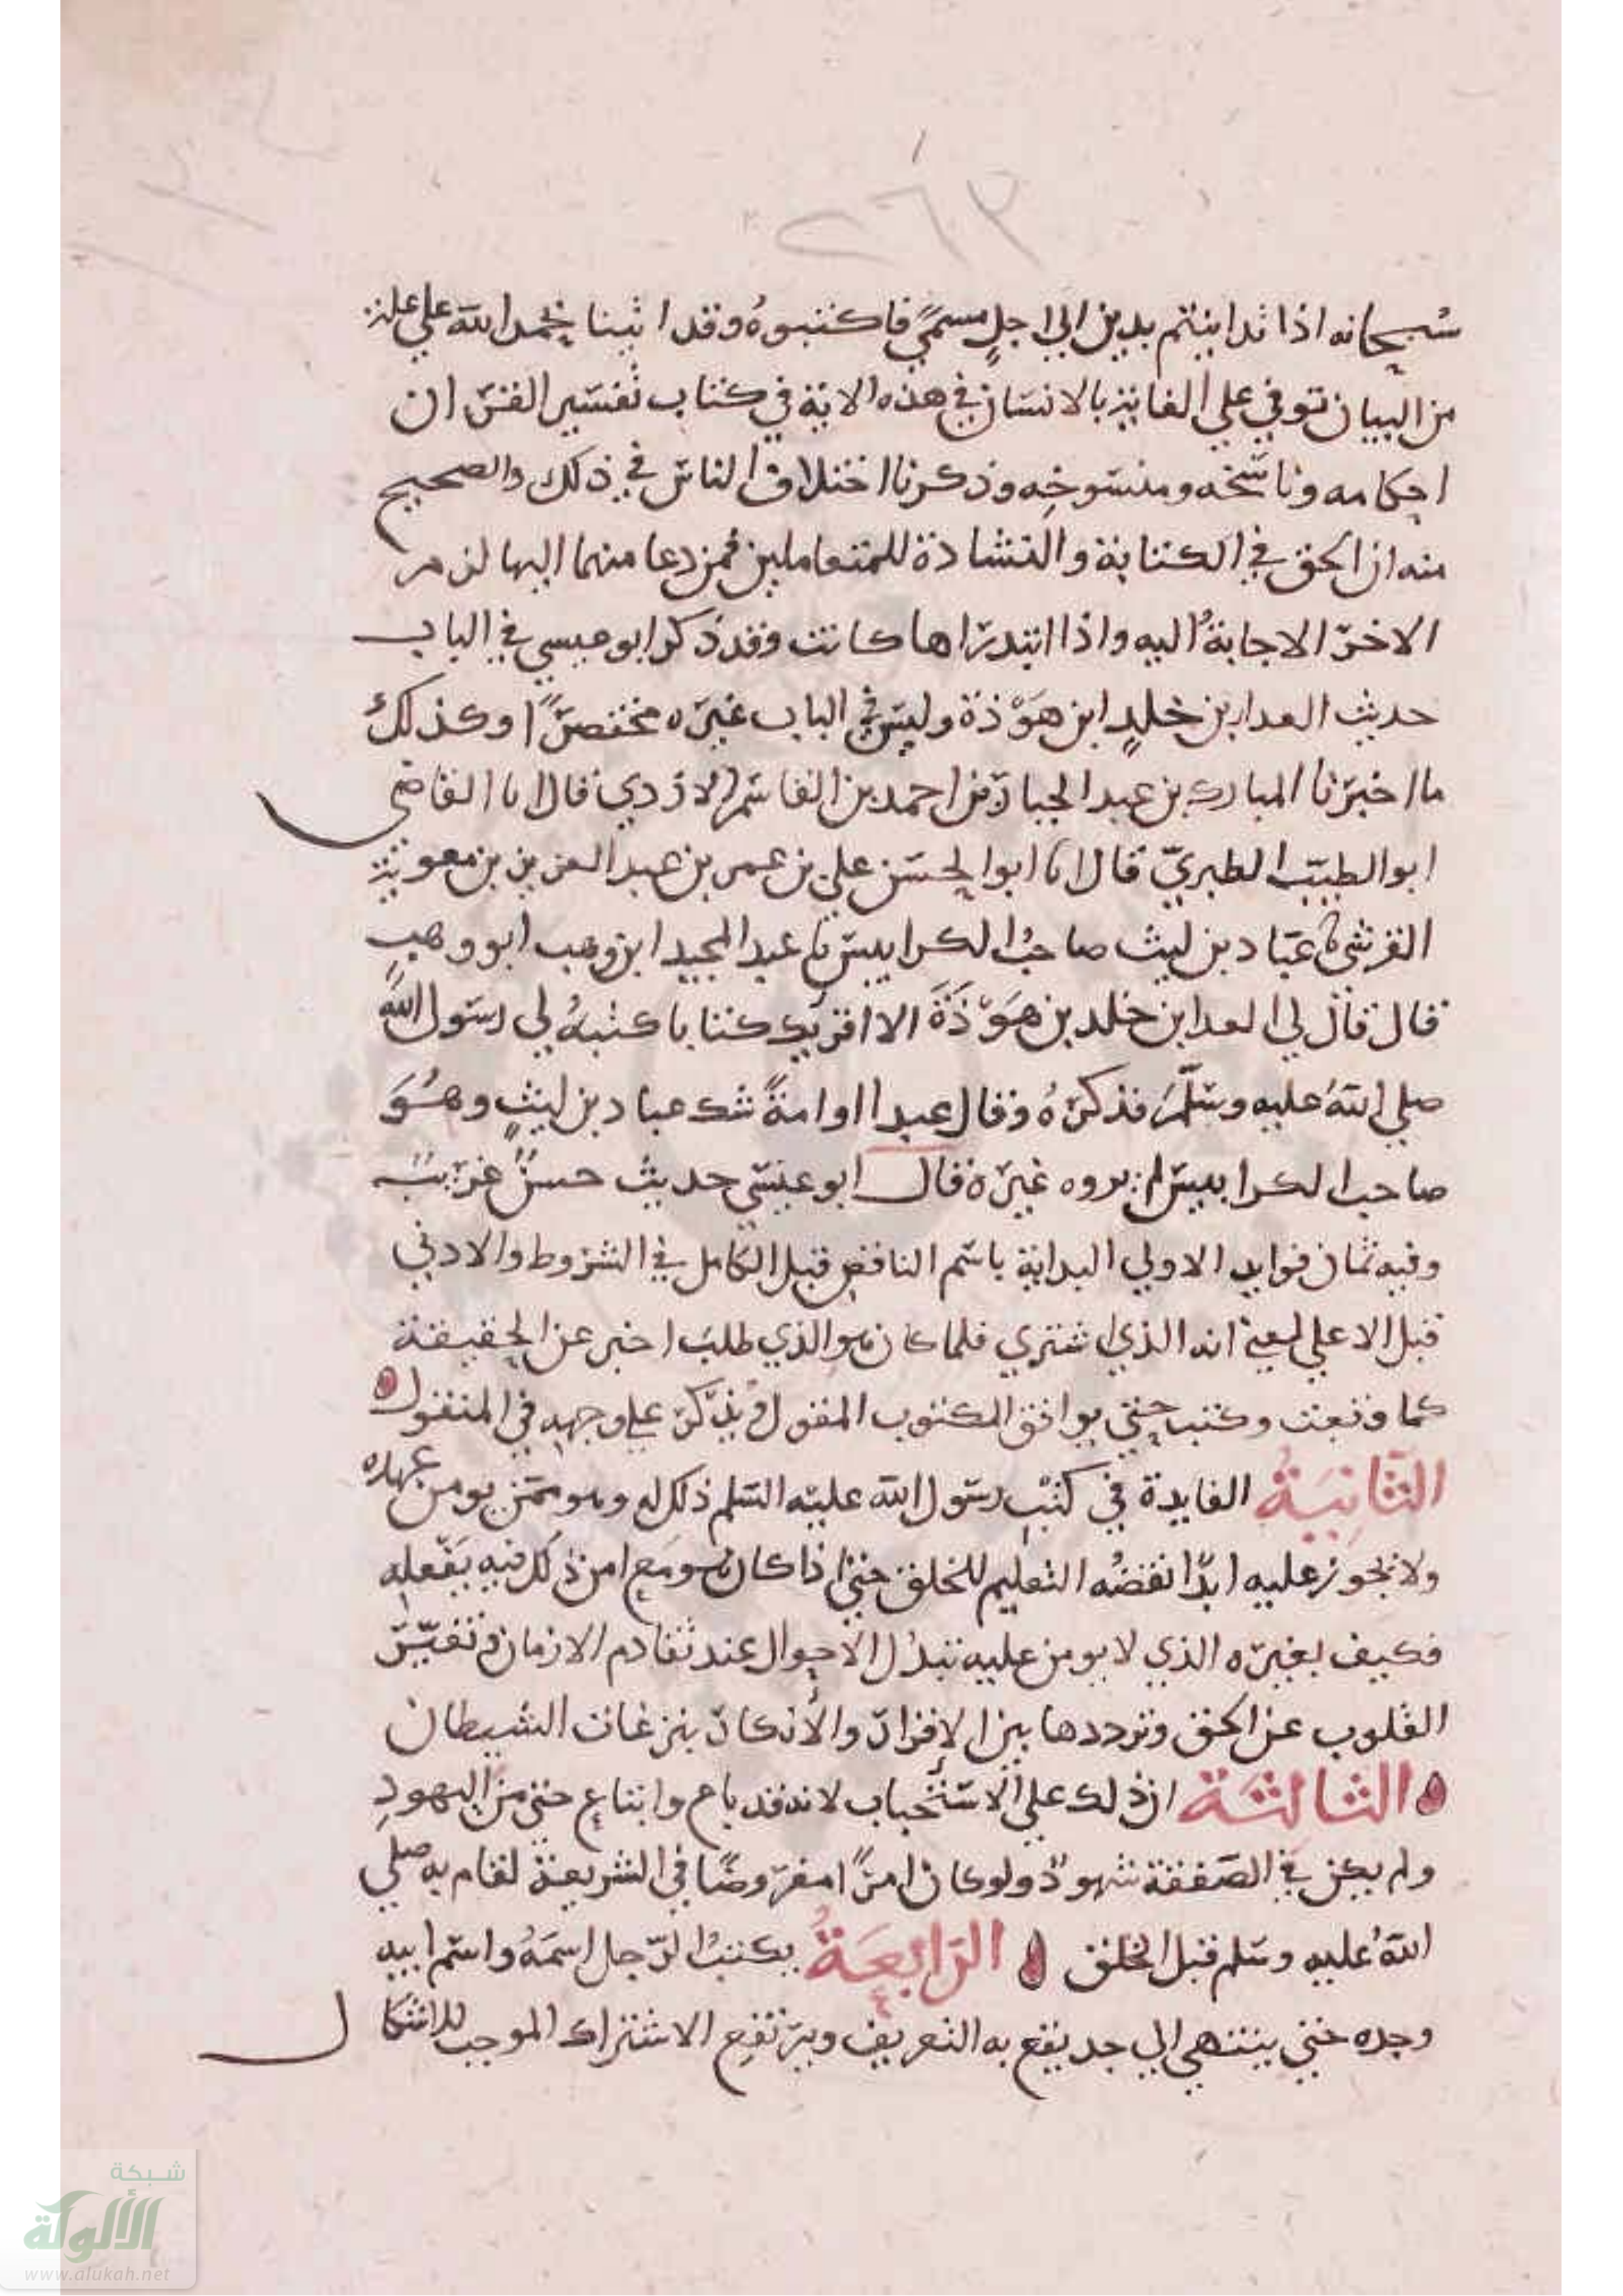 ٢٦٢
سبحانه اذا تداينتم بدين الى اجلٍ مسمىً فاكتبوهُ وقد اتينا بحمد الله على علية
من البيان توفي على الغاية بالانسان في هذه الاية في كتاب تفسير القران
احكامه وناسخه ومنسوخِه وذكرنا اختلاف الناس في ذلك والصحيح
منه ان الحق في الكتابة والشهادة للمتعاملين فمن دعا منهما اليها لزم
الاخر الاجابةُ اليه واذا ابتدراها كانت وقد ذكر ابو عيسى في الباب
حديث العدا بن خلدٍ ابن هَوْذة وليس في الباب غيره مختصرًا وكذلك
ما اخبرنا المبارك بن عبد الجبار من احمد بن القاسم الازدي قال انا القاضي
ابو الطيب الطبريّ قال انا ابو الحسن علي بن عمر بن عبد العزيز بن معوية
القرشي نا عبّاد بن ليث صاحبُ الكرابيس نا عبد المجيد ابن وهب ابو وهبٍ
قال قال لي العدا بن خلد بن هَوْذَةَ الا اقريك كتابا كتبهُ لي رسول اللهِ
صلى اللهُ عليه وسلّم فذكرهُ وقال عبدا او امةً شك عباد بن ليثٍ وهُوَ
صاحب الكرابيس لم يروه غيره قال ابو عيسى حديث حسنٌ غريبٌ
وفيه ثمان فوايد الاولى البداية باسم الناقص قبل الكامل في الشروط والادنى
قبل الاعلى لمعنى انه الذي اشترى فلما كان هو الذي طلب اخبر عن الحقيقة
كما وقعت وكتب حتى يوافق المكتوب المقول ويذكر على وجهه في المنقول
الثَّانِيَةُ الفايدة في كَتْبِ رسول الله عليه السّلم ذلك له وهو ممن يومن عهده
ولا يجوز عليه ابدًا نقضُه التعليم للخلق حتى اذا كان هو مع امن ذلك فيه يَفْعله
فكيف بغيره الذي لا يومن عليه تبدُّل الاحوال عند تقادم الازمان وتغيّر
القلوب عن الحق وترددها بين الإقرار والأنكار بنزغات الشيطان
الثالثة ان ذلك على الاستحباب لانه قد باع وابتاع حتى من اليهودِ
ولم يكن في الصّفقة شهودٌ ولو كان امرًا مفروضًا في الشريعة لقام به صلى
اللهُ عليه وسلم قبل الخلق الرَّابِعَةُ يكتبُ الرّجل اسمَهُ واسم ابيه
وجده حتى ينتهي الى حد يقع به التعريف ويرتفع الاشتراك الموجب للاشكال
شبكة
الألوكة
www.alukah.net